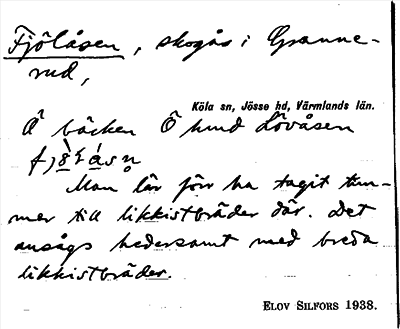 Fjölåsen, skogås i Granne-
rud,
Köla sn, Jösse hd, Värmlands län.
Å bäcken Ö hmd Lövåsen
Man lär förr ha tagit tim-
mer till likkistbräder där. Det
ansågs hedersamt med breda
likkistbräder.
ELOV SILFORS 1938.